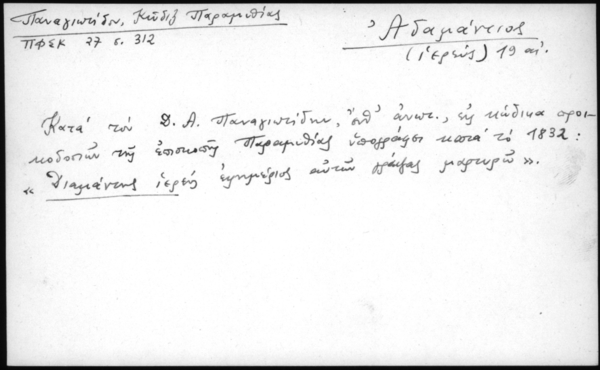 Παναγιωτίδου, Κῶδιξ Παραμυθίας
ΠΦΣΚ 27 σ. 312
Ἀδαμάντιος
(ἱερεύς) 19 αἰ.
Κατά τόν Δ. Α. Παναγιωτίδην, ἔνθ' ἀνωτ., εἰς κώδικα προι-
κοδοσιῶν τῆς ἐπισκοπῆς Παραμυθίας ὑπογράφει κατά τό 1832:
« Διαμάντης ἱερεύς ἐφημέριος αὐτῶν γράψας μαρτυρῶ ».